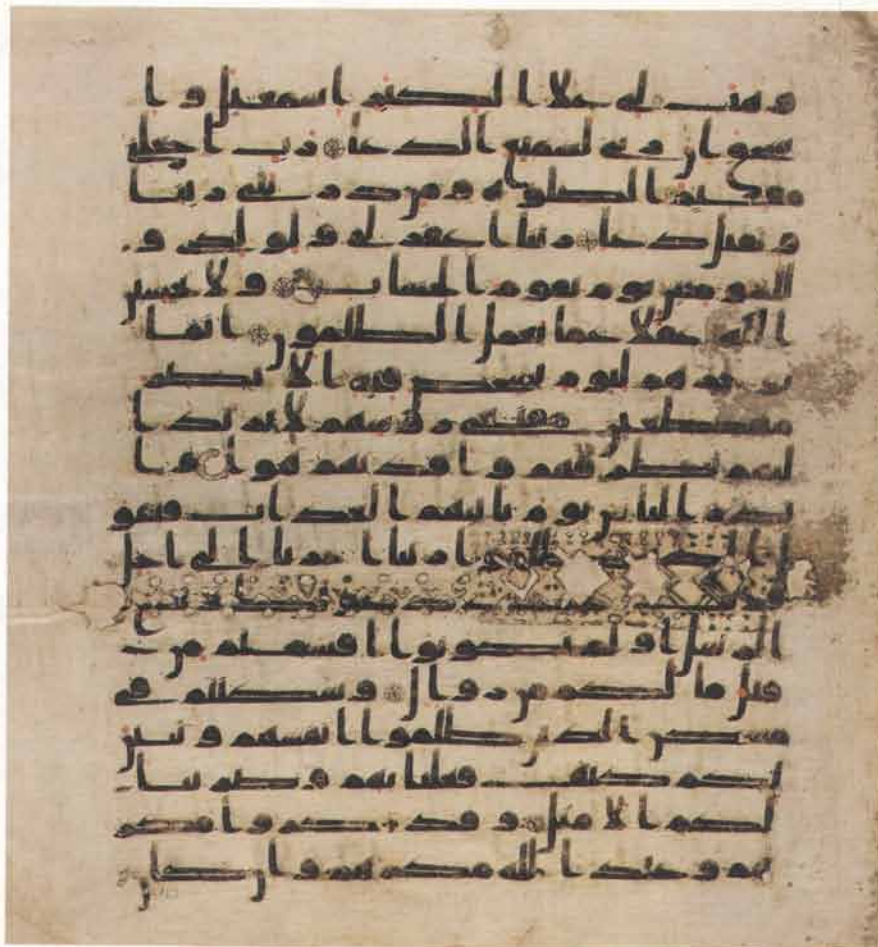 وهب لي على الكبر اسمعيل وا
سحق ان ربي لسميع الدعا رب اجعلني
مقيم الصلوه ومن ذريتي ربنا
وتقبل دعا ربنا اغفر لي ولولدي و
للمومنين يوم يقوم الحساب ولا تحسبن
الله غفلا عما يعمل الظلمون انما
يوخرهم ليوم تشخص فيه الابصر
مهطعين مقنعي روسهم لا يرتد ا
ليهم طرفهم وافدتهم هوا وا
نذر الناس يوم ياتيهم العذاب فيقو
ل الذين ظلموا ربنا اخرنا الى اجل
قريب نجب دعوتك ونتبع
الرسل اولم تكونوا اقسمتم من
قبل ما لكم من زوال وسكنتم في
مسكن الذين ظلموا انفسهم وتبين
لكم كيف فعلنا بهم وضربنا
لكم الامثل وقد مكروا مكر
هم وعند الله مكرهم وان كان